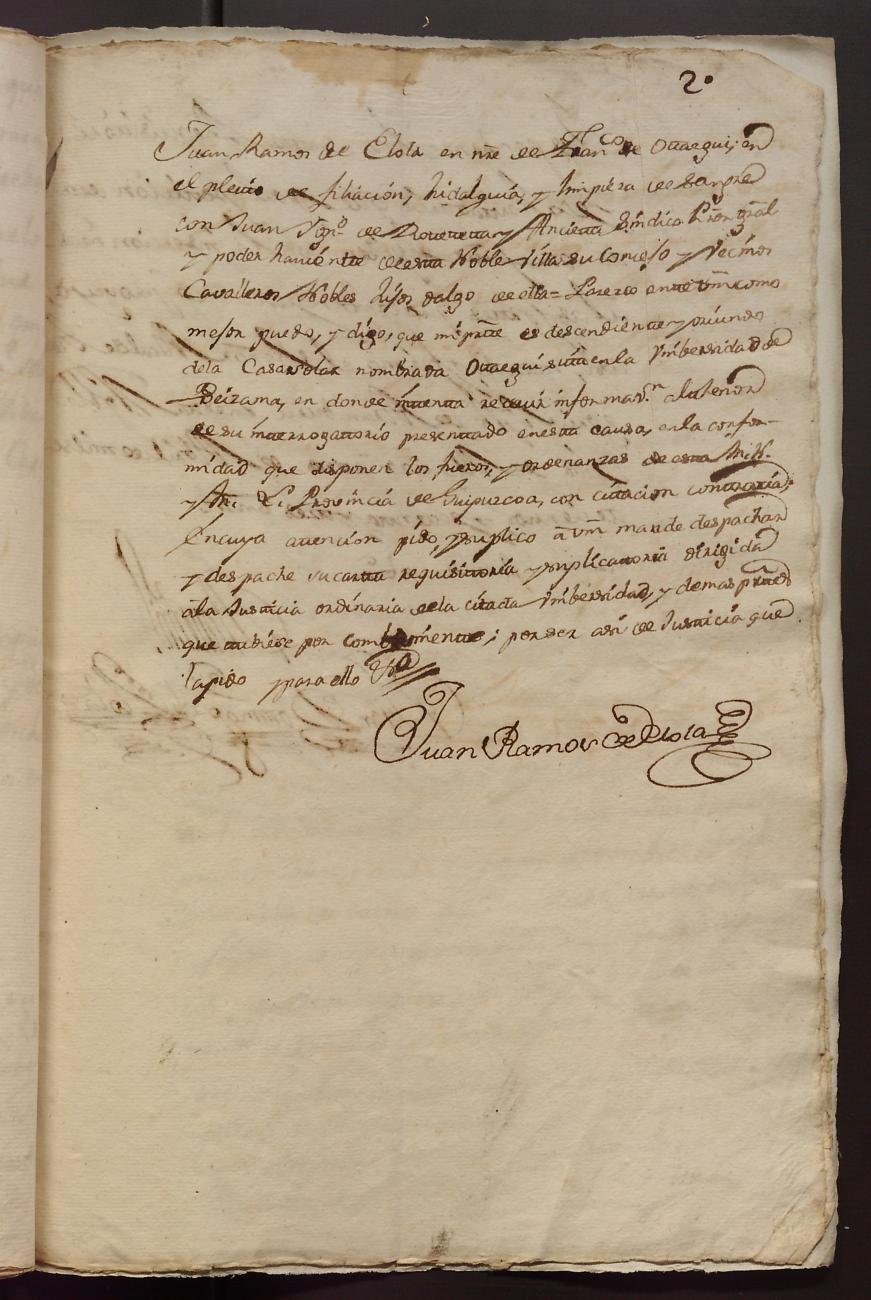 2º
Juan Ramos de Elola en nre de Franco de Otaegui, en
el pleito de filiación, hidalguia, y limpieza de Sangre
con Juan Ignº de y Anzieta Sindico Prôr gral
y poder haviente de esta Noble Villa su Concejo y Vecinos
Cavalleros Nobles hijos dalgo de ella = Parezco ante Vm como
mejor puedo, y digo, que mi parte es descendiente y oriundo
dela Casa solar nombrada Otaegui sita en la Vnibersidad de
Beizama, en donde intenta recivir informazn altenor
de su interrogattorio presenttado enesta causa, en la confor-
midad que disponen los fueros, y ordenanzas de esta M. N.
y M. L. Provincia de Guipuzcoa, con cittacion contraria;
Encuya attención pido, y suplico á Vm mande despachar
y despache su carta requisittoria y suplicattoria dirigida
ala Justicia ordinaria de la citada Vnibersidad, y demas partes
que tubiese por combenientte; por ser asi de Justicia que
la pido y para ello &ª
Juan Ramos de Elola